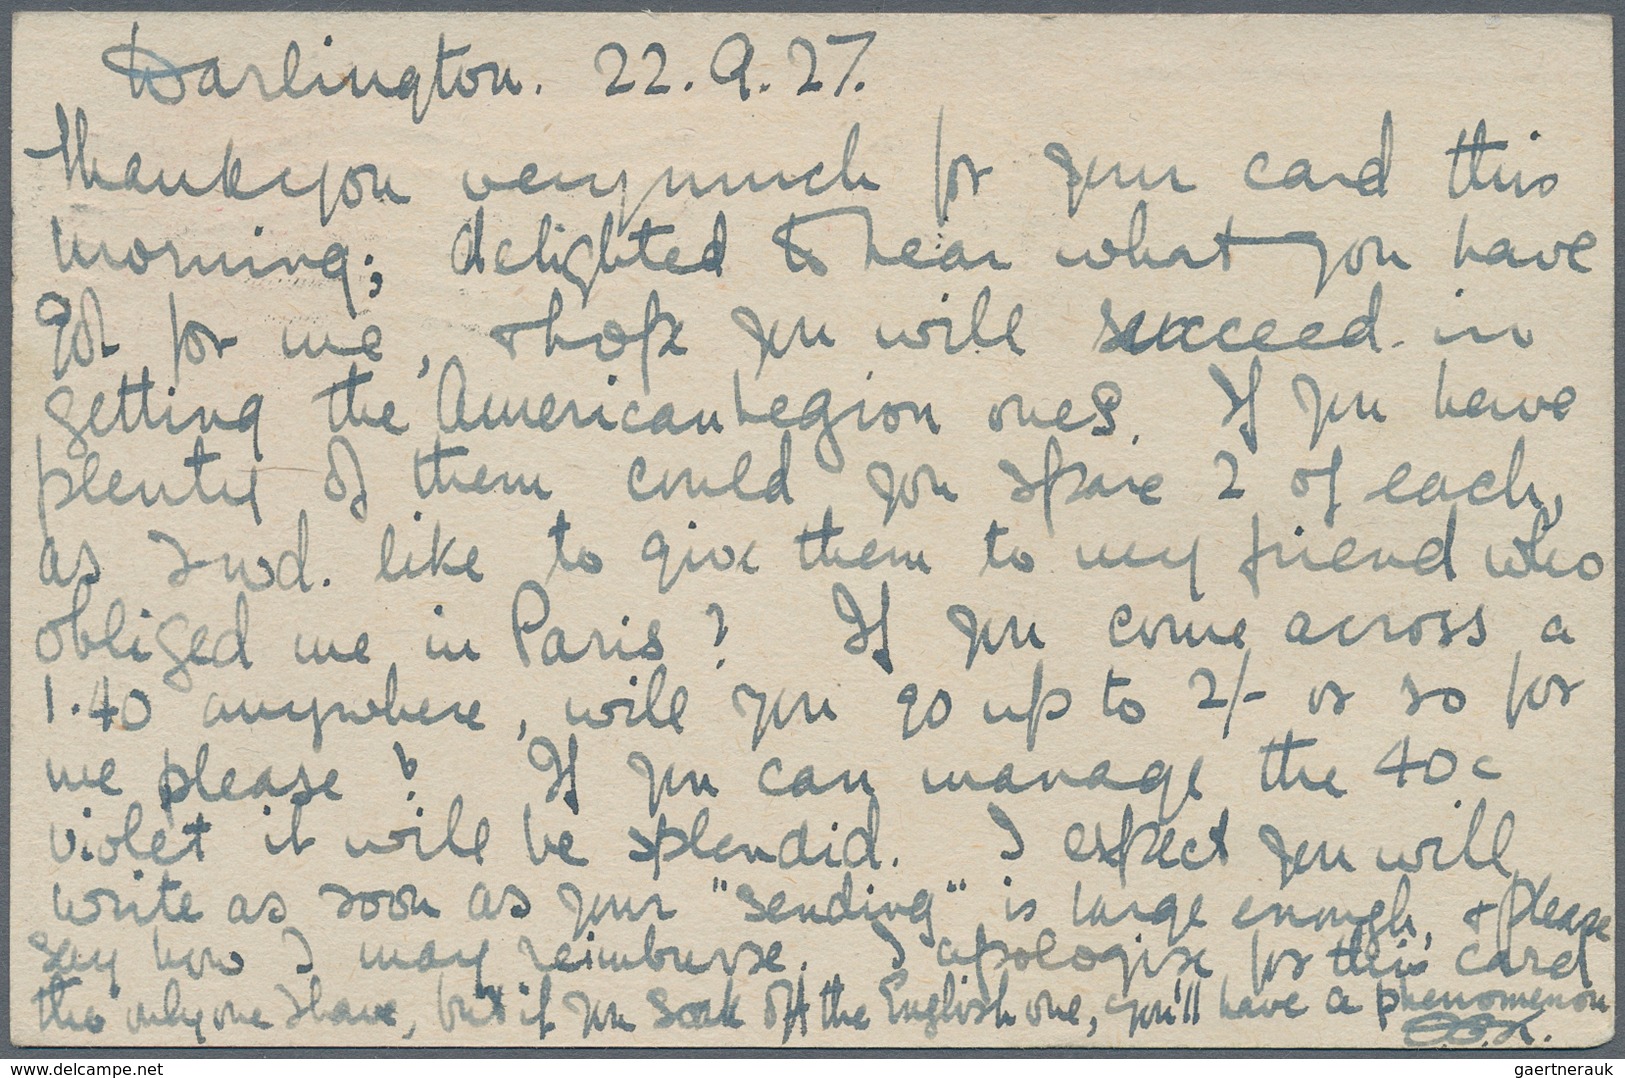 Darlington. 22.9.27.
Thankyou very much for your card this
morning; delighted to hear what you have
got for me, & hope you will succeed in
getting the American Legion ones. If you have
plenty of them could you spare 2 of each,
as I wd. like to give them to my friend who
obliged me in Paris? If you come across a
1.40 anywhere, will you go up to 2/- or so for
me please? If you can manage the 40c
violet it will be splendid. I expect you will
write as soon as your "sending" is large enough, & please
say how I may reimburse. I apologise for this card
the only one I have, but if you soak off the English one, you'll have a phenomenon
delcampe.net
gaertnerauk